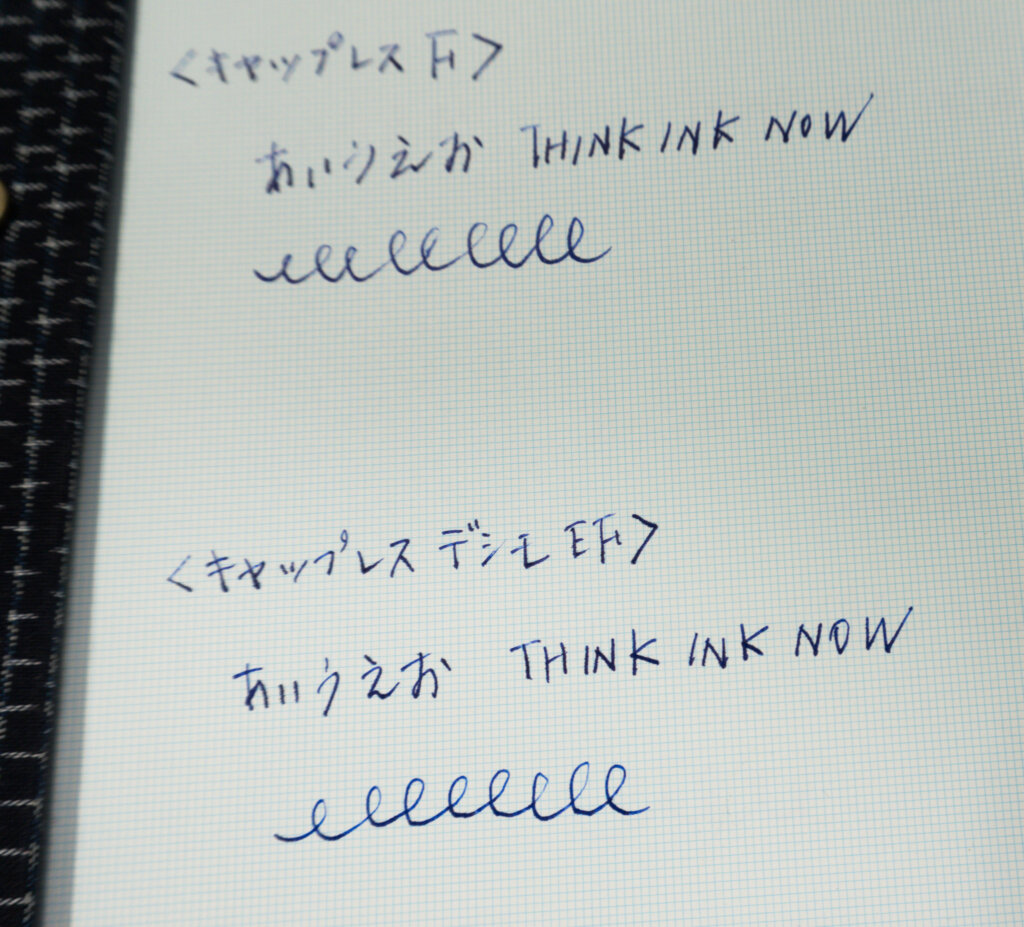 <キャップレス F>
あいうえお THINK INK NOW
<キャップレス デシモ EF>
あいうえお THINK INK NOW